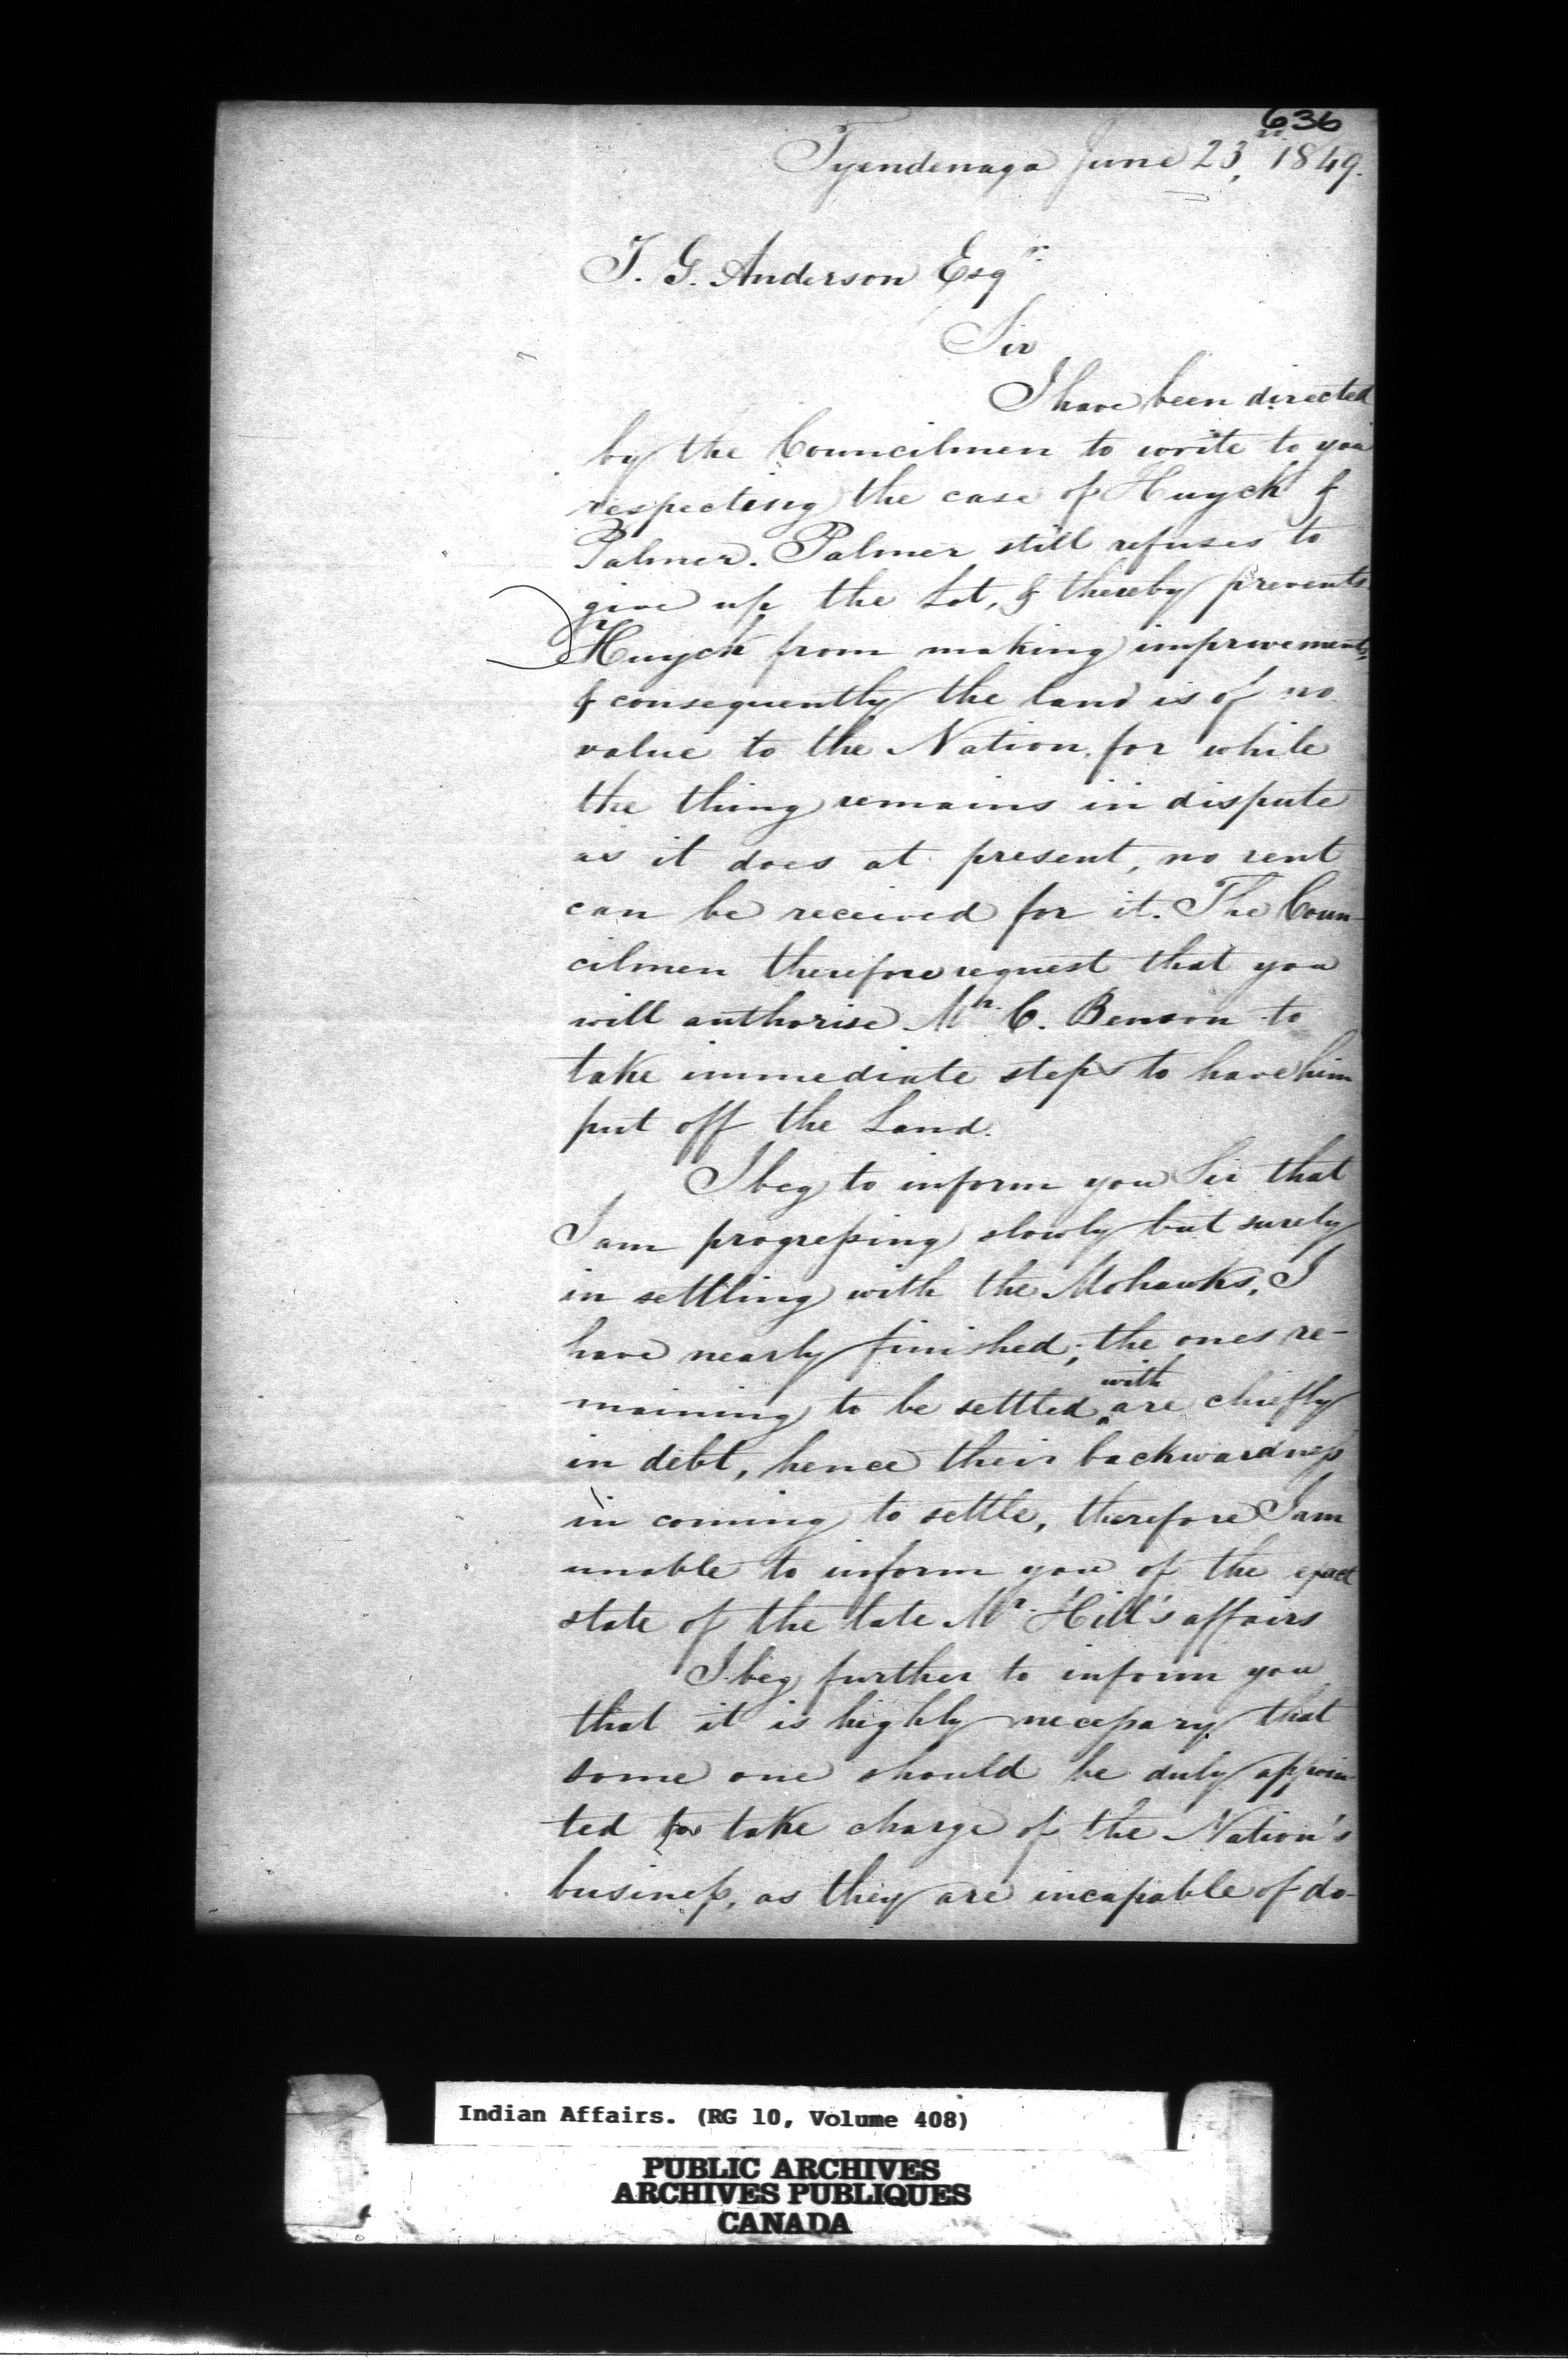 636
Tyendenaga June 23, 1849.
T. G. Anderson Esqr.
Sir
I have been directed
by the Councilmen to write to you
respecting the case of Huyck &
Palmer. Palmer still refuses to
give up the Lot, & thereby prevents
Huyck from making improvements,
& consequently the land is of no
value to the Nation, for while
the thing remains in dispute
as it does at present, no rent
can be received for it. The Coun-
cilmen therefore request that you
will authorise Mr. C. Benson to
take immediate steps to have him
put off the Land.
I beg to inform you Sir that
I am progressing slowly but surely
in settling with the Mohawks, I
have nearly finished; the ones re-
maining to be settled with are chiefly
in debt, hence their backwardness
in coming to settle, therefore I am
unable to inform you of the exact
state of the late Mr. Hill's affairs
I beg further to inform you
that it is highly necessary that
some one should be duly appoin-
ted to take charge of the Nation's
business, as they are incapable of do-
Indian Affairs. (RG 10, Volume 408)
PUBLIC ARCHIVES
ARCHIVES PUBLIQUES
CANADA